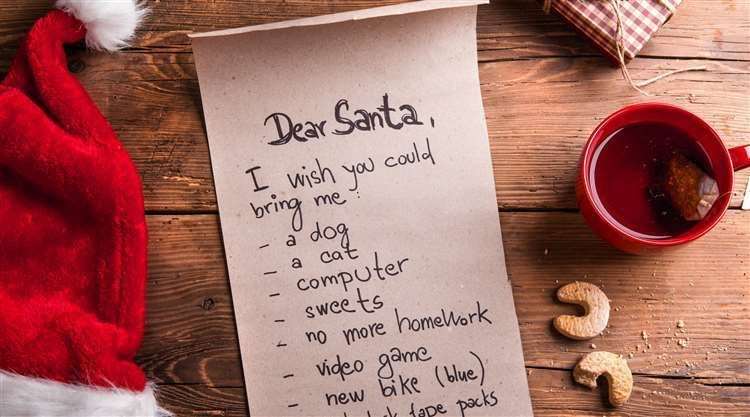 Dear Santa,
I wish you could
bring me:
- a dog
- a cat
- computer
- sweets
- no more homework
- video game
- new bike (blue)
tape packs